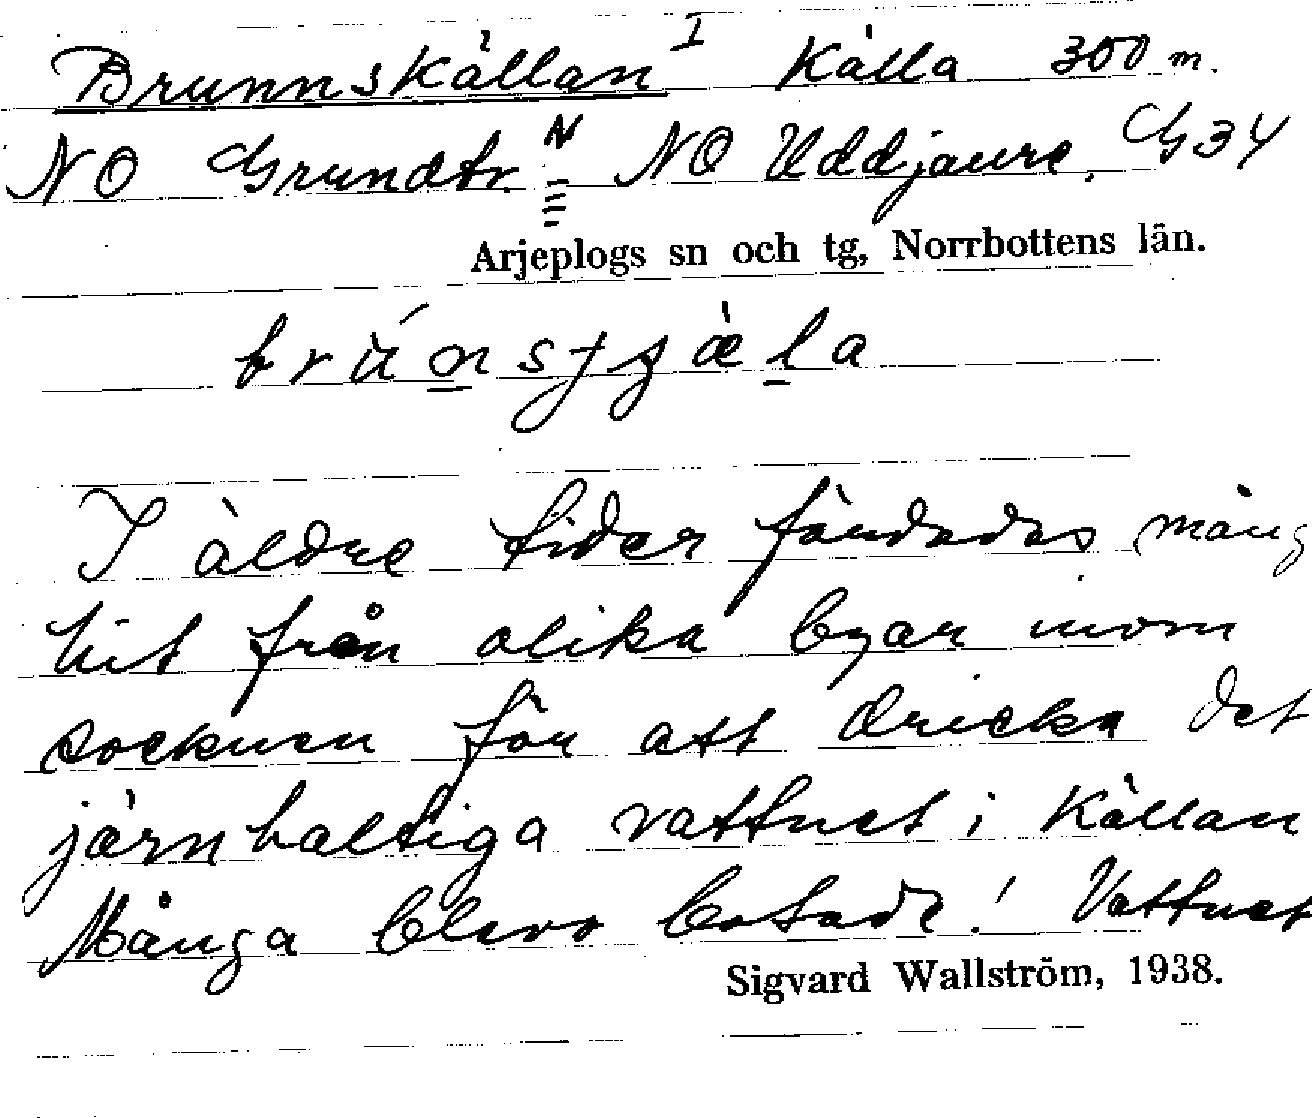 Brunnskällan I Källa 300 m.
NO Grundtr. N NO Uddjaure. G34
Arjeplogs sn och tg, Norrbottens län.
I äldre tider färdades mång
hit från olika byar inom
socknen för att dricka det
järnhaltiga vattnet i källan
Många blevo botade! Vattnet
Sigvard Wallström, 1938.